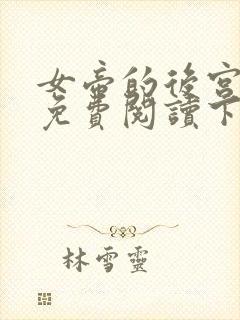 女帝的後宮
免費閱讀下
林雪靈